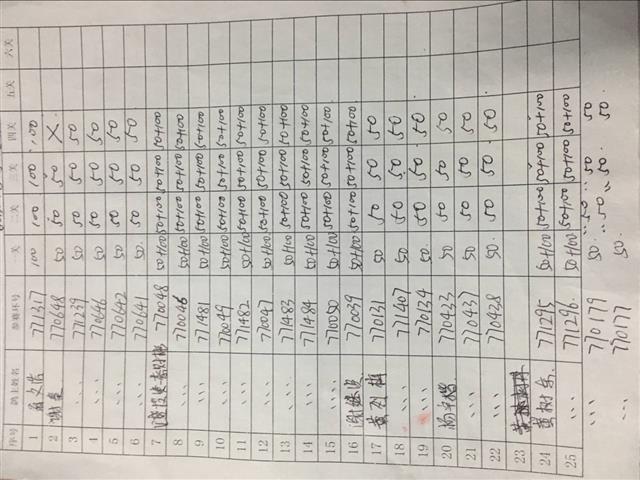 序号 鸽主姓名 参赛环号 一关 二关 三关 四关 五关 六关
1 771317 100 100 100 100
2 谢 770648 50 50 50 X
3 〃 771239 50 50 50 50
4 〃 770646 50 50 50 50
5 〃 770642 50 50 50 50
6 〃 770641 50 50 50 50
7 770048 50+100 50+100 50+100 50+100
8 〃 770046 50+100 50+100 50+100 50+100
9 〃 771481 50+100 50+100 50+100 50+100
10 〃 770049 50+100 50+100 50+100 50+100
11 〃 771482 50+100 50+100 50+100 50+100
12 〃 770047 50+100 50+100 50+100 50+100
13 〃 771483 50+100 50+100 50+100 50+100
14 〃 771484 50+100 50+100 50+100 50+100
15 〃 770050 50+100 50+100 50+100 50+100
16 谢 770039 50+100 50+100 50+100 50+100
17 黄 770131 50 50 50 50
18 〃 771407 50 50 50 50
19 〃 770134 50 50 50 50
20 杨 770433 50 50 50 50
21 〃 770437 50 50 50 50
22 〃 770428 50 50 50 50
23
24 黄树乐 771295 50+100 50+100 50+100 50+100
25 〃 771296 50+100 50+100 50+100 50+100
〃 770179 50 50 50 50
〃 770177 50 50 50 50